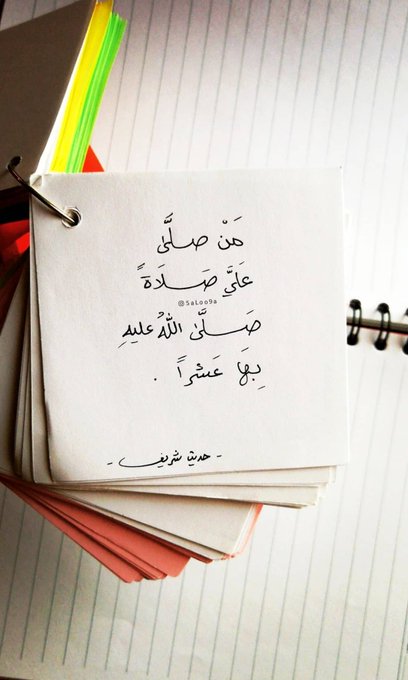 مَنْ صلَّىٰ
عَلَيَّ صَلَاةً
@SaLoo9a
صَلَّىٰ اللهُ عليهِ
بِهَا عَشراً .
- حديث شريف -